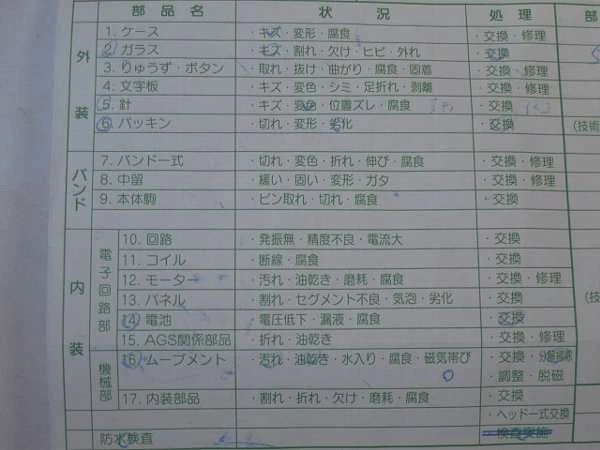 部品名 状況 処理 部
外装
1. ケース ・キズ・変形・腐食 ・交換・修理
2. ガラス ・キズ・割れ・欠け・ヒビ・外れ ・交換
3. りゅうず・ボタン ・取れ・抜け・曲がり・腐食・固着 ・交換・修理
4. 文字板 ・キズ・変色・シミ・足折れ・剥離 ・交換・修理
5. 針 ・キズ・変色・位置ズレ・腐食 ・交換
6. パッキン ・切れ・変形・劣化 ・交換 (技術
バンド
7. バンド一式 ・切れ・変色・折れ・伸び・腐食 ・交換・修理
8. 中留 ・緩い・固い・変形・ガタ ・交換・修理
9. 本体駒 ・ピン取れ・切れ・腐食 ・交換
内装
電子回路部
10. 回路 ・発振無・精度不良・電流大 ・交換
11. コイル ・断線・腐食 ・交換
12. モーター ・汚れ・油乾き・磨耗・腐食 ・交換・修理
13. パネル ・割れ・セグメント不良・気泡・劣化 ・交換 (技
14. 電池 ・電圧低下・漏液・腐食 ・交換
15. AGS関係部品 ・折れ・油乾き ・交換・修理
機械部
16. ムーブメント ・汚れ・油乾き・水入り・腐食・磁気帯び ・交換・分解掃除
・調整・脱磁
17. 内装部品 ・割れ・折れ・欠け・磨耗・腐食 ・交換
・ヘッド一式交換
防水検査 ・検査実施